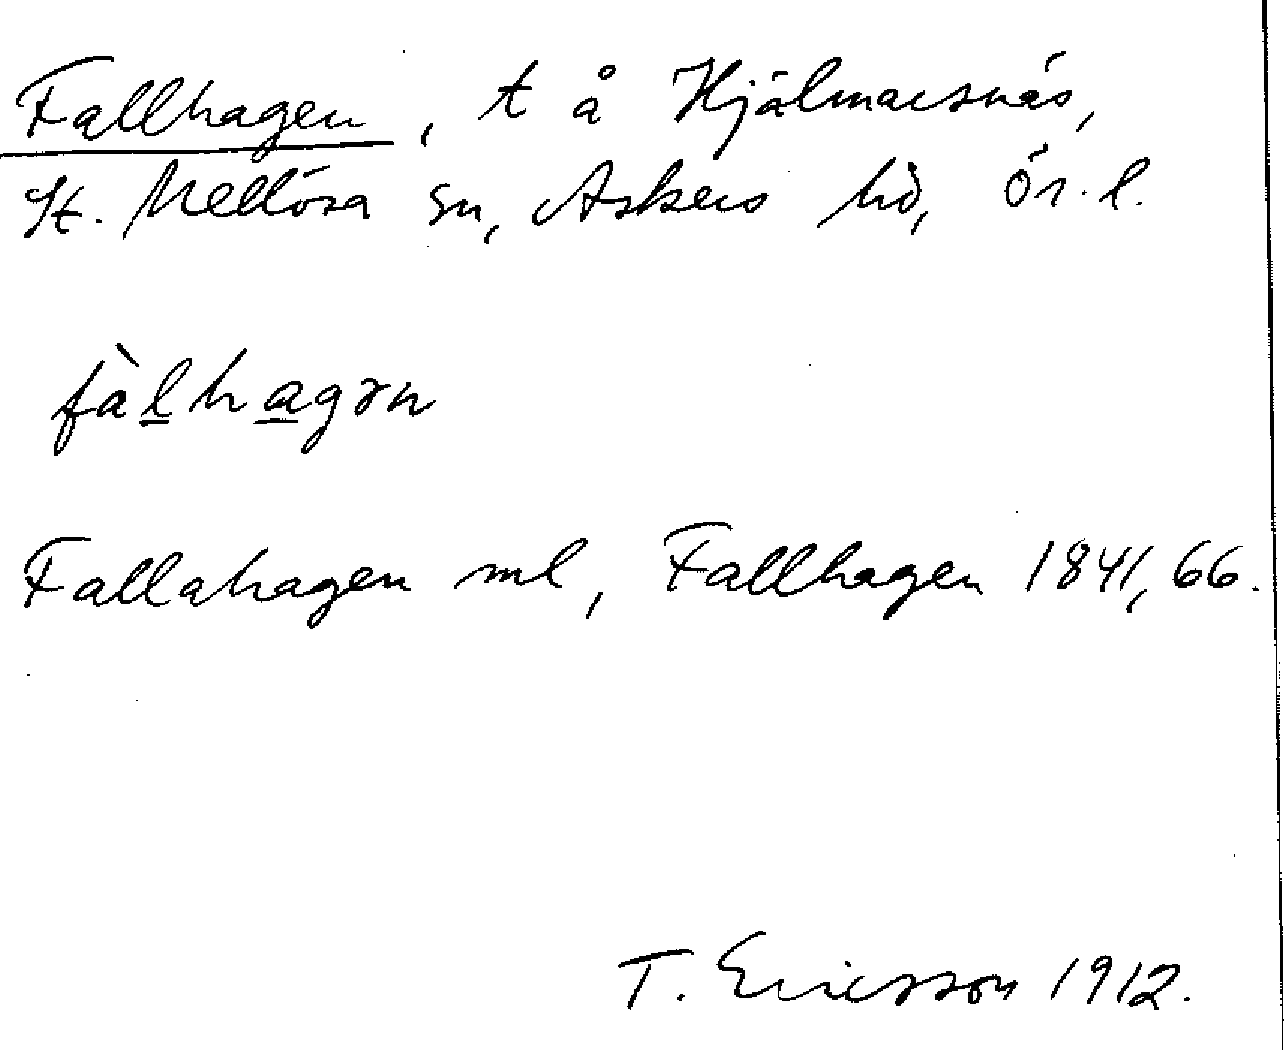 Fallhagen, t å Hjälmarsnäs,
St. Mellösa sn, Askers hd, Ör. l.
fàlhagən
Fallahagen ml, Fallhagen 1841, 66.
T. Ericsson 1912.